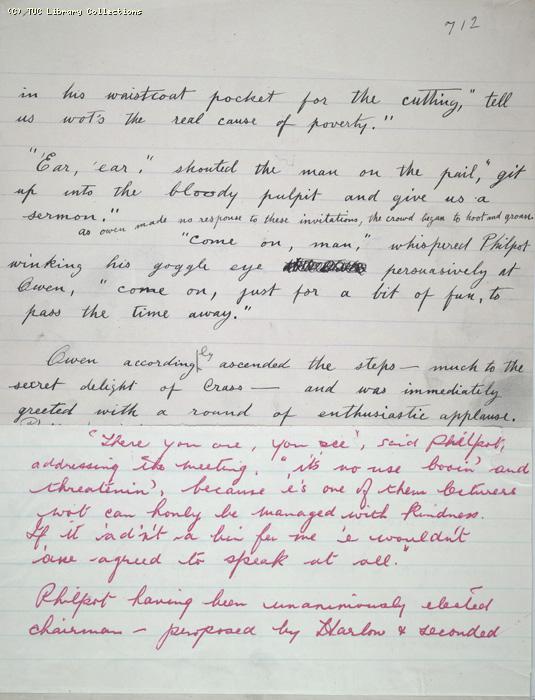 (C) TUC Library Collections
712
in his waistcoat pocket for the cutting," tell
us wot's the real cause of poverty."
"'Ear, 'ear." shouted the man on the pail," git
up into the bloody pulpit and give us a
sermon."
as owen made no response to these invitations, the crowd began to hoot and groan
"come on, man," whispered Philpot
winking his goggle eye persuasively at
Owen, "come on, just for a bit of fun, to
pass the time away."
Owen accordingly ascended the steps — much to the
secret delight of Crass — and was immediately
greeted with a round of enthusiastic applause.
"There you are, you see", said Philpot,
addressing the meeting. "it's no use booin' and
threatenin', because 'e's one of them lecturers
wot can honly be managed with kindness.
If it 'adn't a bin for me 'e wouldn't
'ave agreed to speak at all."
Philpot having been unanimously elected
chairman — proposed by Harlow & seconded